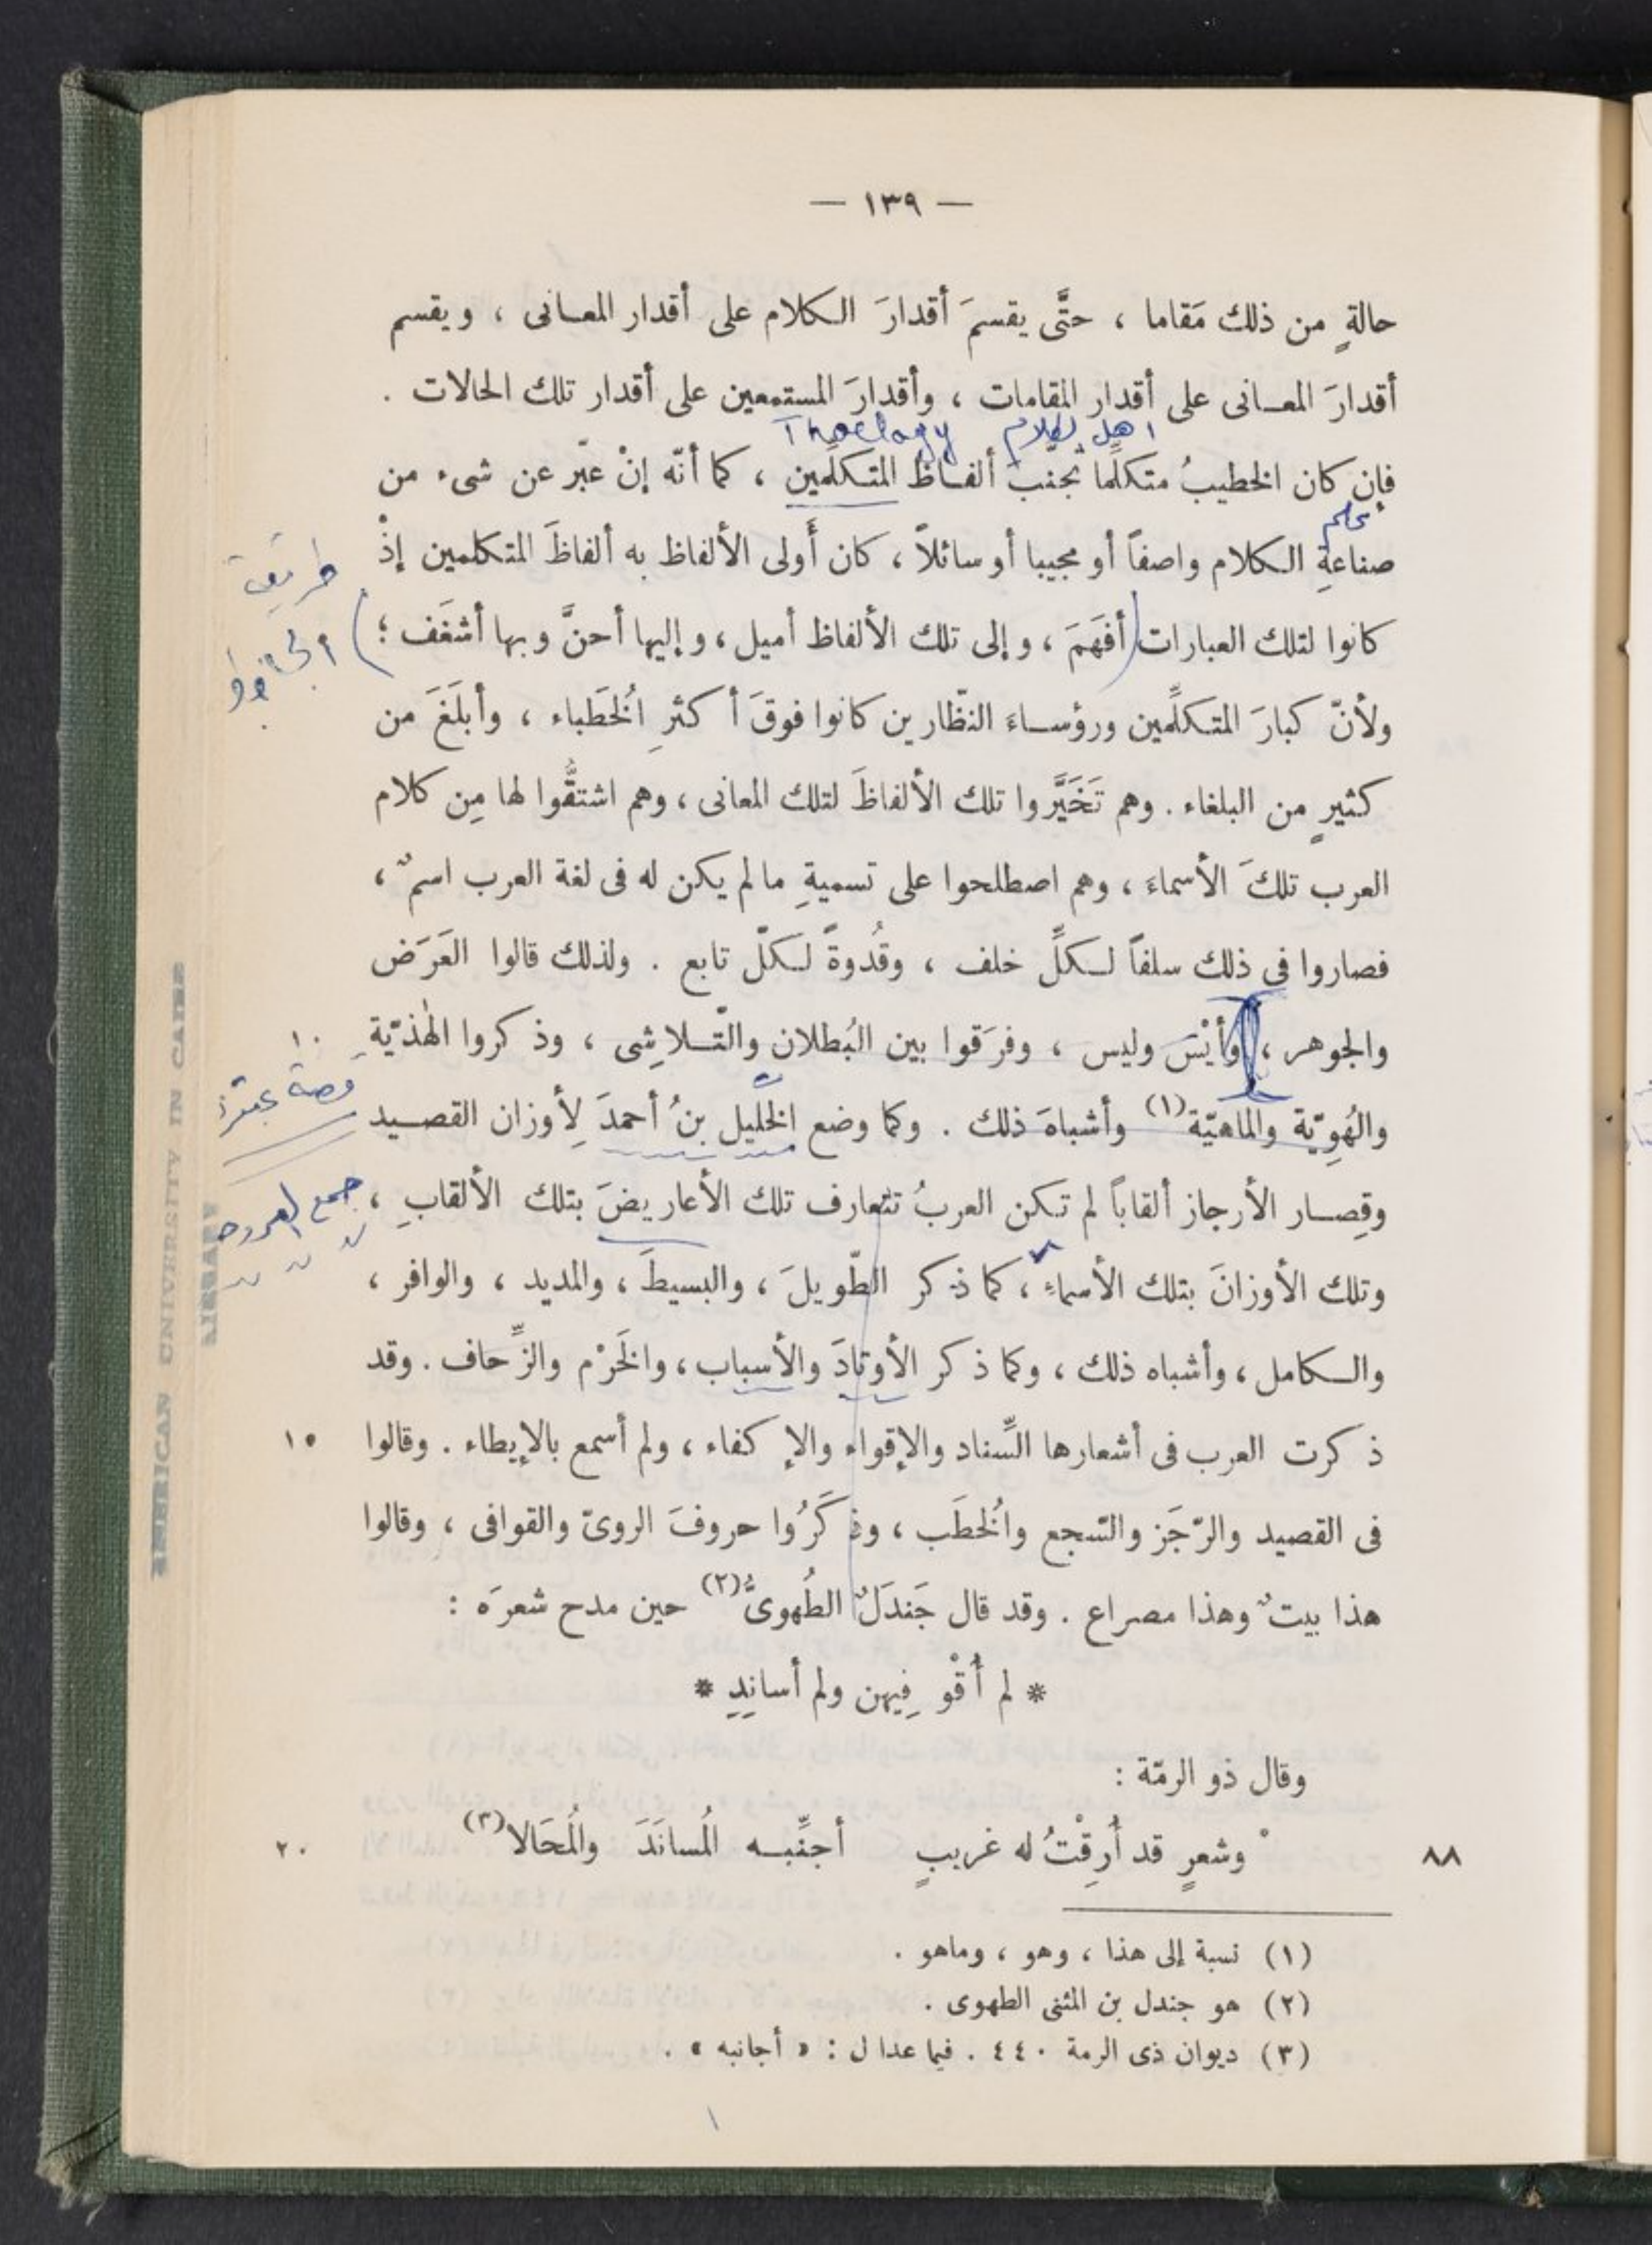 — ١٣٩ —
حالةٍ من ذلك مَقاما ، حتَّى يقسمَ أقدارَ الكلام على أقدار المعانى ، ويقسم
أقدارَ المعانى على أقدار المقامات ، وأقدارَ المستمعين على أقدار تلك الحالات .
اهل الكلام Thoelogy
فإن كان الخطيبُ متكلِّما تجنبَ ألفاظ المتكلِّمين ، كما أنّه إنْ عبّر عن شىء من
علم
صناعةِ الكلام واصفاً أو مجيبا أو سائلاً ، كان أَولى الألفاظ به ألفاظَ المتكلمين إذْ
طريقة
كانوا لتلك العبارات (أفهَمَ ، وإلى تلك الألفاظ أميل ، وإليها أحنَّ وبها أشغَف ؛)
ولأنّ كبارَ المتكلِّمين ورؤساءَ النظّارين كانوا فوقَ أكثرِ الخُطَباء ، وأبلَغَ من
كثيرٍ من البلغاء . وهم تَخَيَّروا تلك الألفاظَ لتلك المعانى ، وهم اشتقُّوا لها مِن كلام
العرب تلكَ الأسماءَ ، وهم اصطلحوا على تسميةِ ما لم يكن له فى لغة العرب اسمٌ ،
فصاروا فى ذلك سلفاً لكلِّ خلف ، وقُدوةً لكلّ تابع . ولذلك قالوا العَرَض
والجوهر ، وأيْسَ وليس ، وفرَقوا بين البُطلان والتّلاشِى ، وذكروا الهٰذيّةِ ١٠
والهُوِيّة والماهيّة(١) وأشباهَ ذلك . وكما وضع الخليل بنُ أحمدَ لِأوزان القصيد
وقِصار الأرجاز ألقاباً لم تكن العربُ تتعارف تلك الأعاريضَ بتلك الألقابِ ،
جمع العروض
وتلك الأوزانَ بتلك الأسماءِ ، كما ذكر الطّويلَ ، والبسيطَ ، والمديد ، والوافر ،
والكامل ، وأشباه ذلك ، وكما ذكر الأوتادَ والأسباب ، والخَرْم والزِّحاف . وقد
ذكرت العرب فى أشعارها السِّناد والإقواء والإكفاء ، ولم أسمع بالإيطاء . وقالوا ١٥
فى القصيد والرّجَز والسّجع والخُطَب ، وذكَرُوا حروفَ الروىّ والقوافى ، وقالوا
هذا بيتٌ وهذا مصراع . وقد قال جَندَلٌ الطُهوىُّ(٢) حين مدح شعرَه :
* لم أُقْوِ فِيهن ولم أسانِدِ *
وقال ذو الرمّة :
٨٨ ° وشعرٍ قد أَرِقْتُ له غريبٍ أجنِّبه المُسانَدَ والمُحَالا(٣) ٢٠
(١) نسبة إلى هذا ، وهو ، وماهو .
(٢) هو جندل بن المثنى الطهوى .
(٣) ديوان ذى الرمة ٤٤٠ . فيما عدا ل : « أجانبه » .
AMERICAN UNIVERSITY IN CAIRO
LIBRARY